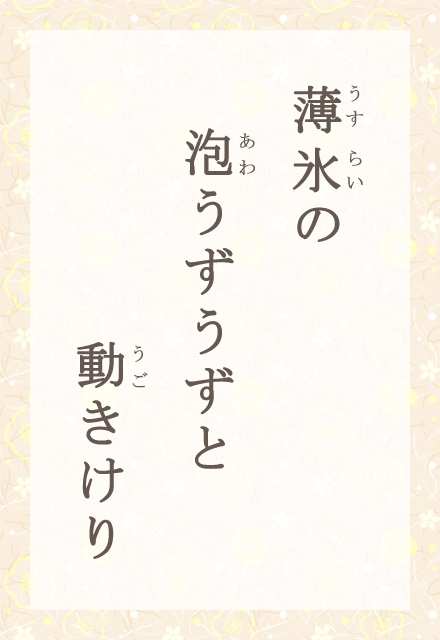 薄氷の
うすらい
泡うずうずと
あわ
動きけり
うご